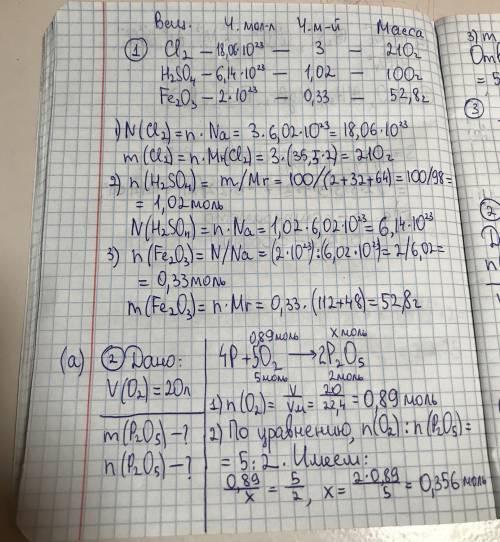 Вещ. Ч. мол-л Ч. м-й Масса
① Cl₂ – 18,06·10²³ – 3 – 210г
H₂SO₄ – 6,14·10²³ – 1,02 – 100г
Fe₂O₃ – 2·10²³ – 0,33 – 52,8г
1) N(Cl₂) = n·Na = 3·6,02·10²³ = 18,06·10²³
m(Cl₂) = n·Mr(Cl₂) = 3·(35,5·2) = 210г
2) n(H₂SO₄) = m/Mr = 100/(2+32+64) = 100/98 =
= 1,02 моль
N(H₂SO₄) = n·Na = 1,02·6,02·10²³ = 6,14·10²³
3) n(Fe₂O₃) = N/Na = (2·10²³):(6,02·10²³) = 2/6,02 =
= 0,33 моль
m(Fe₂O₃) = n·Mr = 0,33·(112+48) = 52,8г
(а) ② Дано:
V(O₂) = 20л
m(P₂O₅) – ?
n(P₂O₅) – ?
0,89 моль x моль
4P + 5O₂ → 2P₂O₅
5 моль 2 моль
1) n(O₂) = V/Vм = 20/22,4 = 0,89 моль
2) По уравнению, n(O₂) : n(P₂O₅) =
= 5 : 2. Имеем:
0,89/x = 5/2, x = 2·0,89/5 = 0,356 моль
3) m
Отв
= 5
③
②